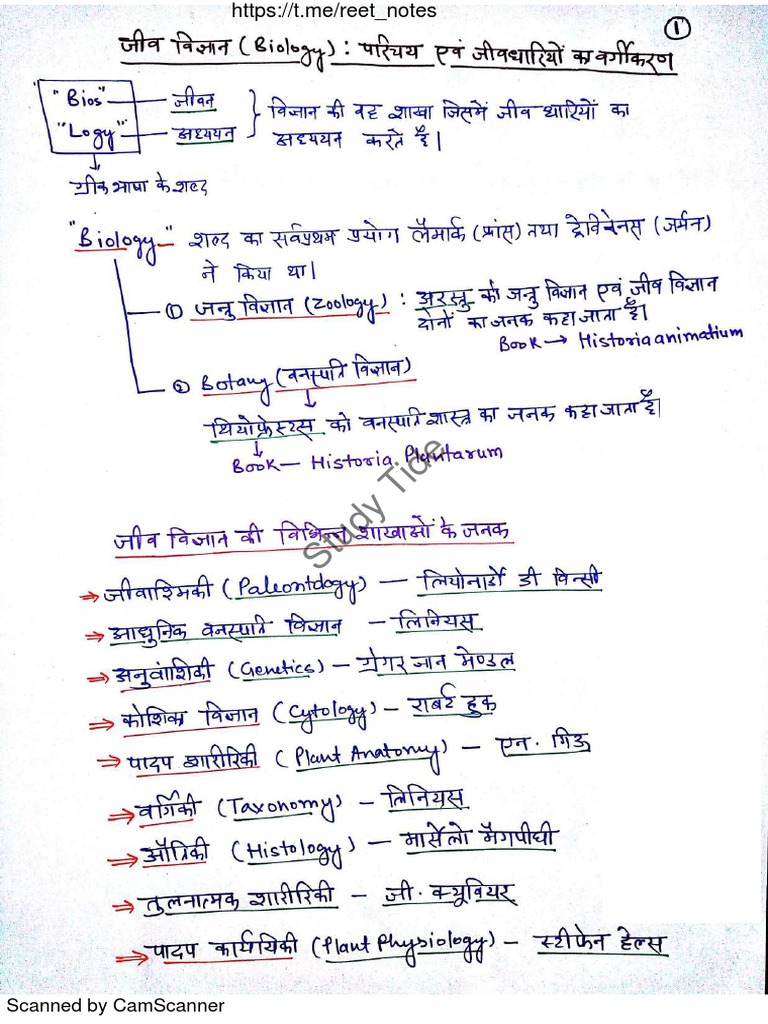 https://t.me/reet_notes
1
जीव विज्ञान (Biology) : परिचय एवं जीवधारियों का वर्गीकरण
"Bios" — जीवन
"Logy" — अध्ययन
विज्ञान की वह शाखा जिसमें जीव धारियों का
अध्ययन करते है।
ग्रीक भाषा के शब्द
"Biology" शब्द का सर्वप्रथम प्रयोग लैमार्क (फ्रांस) तथा ट्रेविरेनस (जर्मन)
ने किया था।
① जन्तु विज्ञान (Zoology) : अरस्तु को जन्तु विज्ञान एवं जीव विज्ञान
दोनों का जनक कहा जाता है।
Book → Historia animatium
② Botany (वनस्पति विज्ञान)
थियोफ्रेस्टस को वनस्पति शास्त्र का जनक कहा जाता है।
Book — Historia Plantarum
Study Tide
जीव विज्ञान की विभिन्न शाखाओं के जनक
⇒ जीवाश्मिकी (Paleontology) — लियोनार्डो डी विन्सी
⇒ आधुनिक वनस्पति विज्ञान – लिनियस
⇒ अनुवांशिकी (Genetics) – ग्रेगर जान मेण्डल
⇒ कोशिका विज्ञान (Cytology) – राबर्ट हुक
⇒ पादप शारीरिकी (Plant Anatomy) – एन. गिऊ
⇒ वर्गिकी (Taxonomy) – लिनियस
⇒ औत्रिकी (Histology) – मार्सेलो मैगपीघी
⇒ तुलनात्मक शारीरिकी – जी. क्यूवियर
⇒ पादप कार्यियिकी (Plant Physiology) – स्टीफेन हेल्स
Scanned by CamScanner